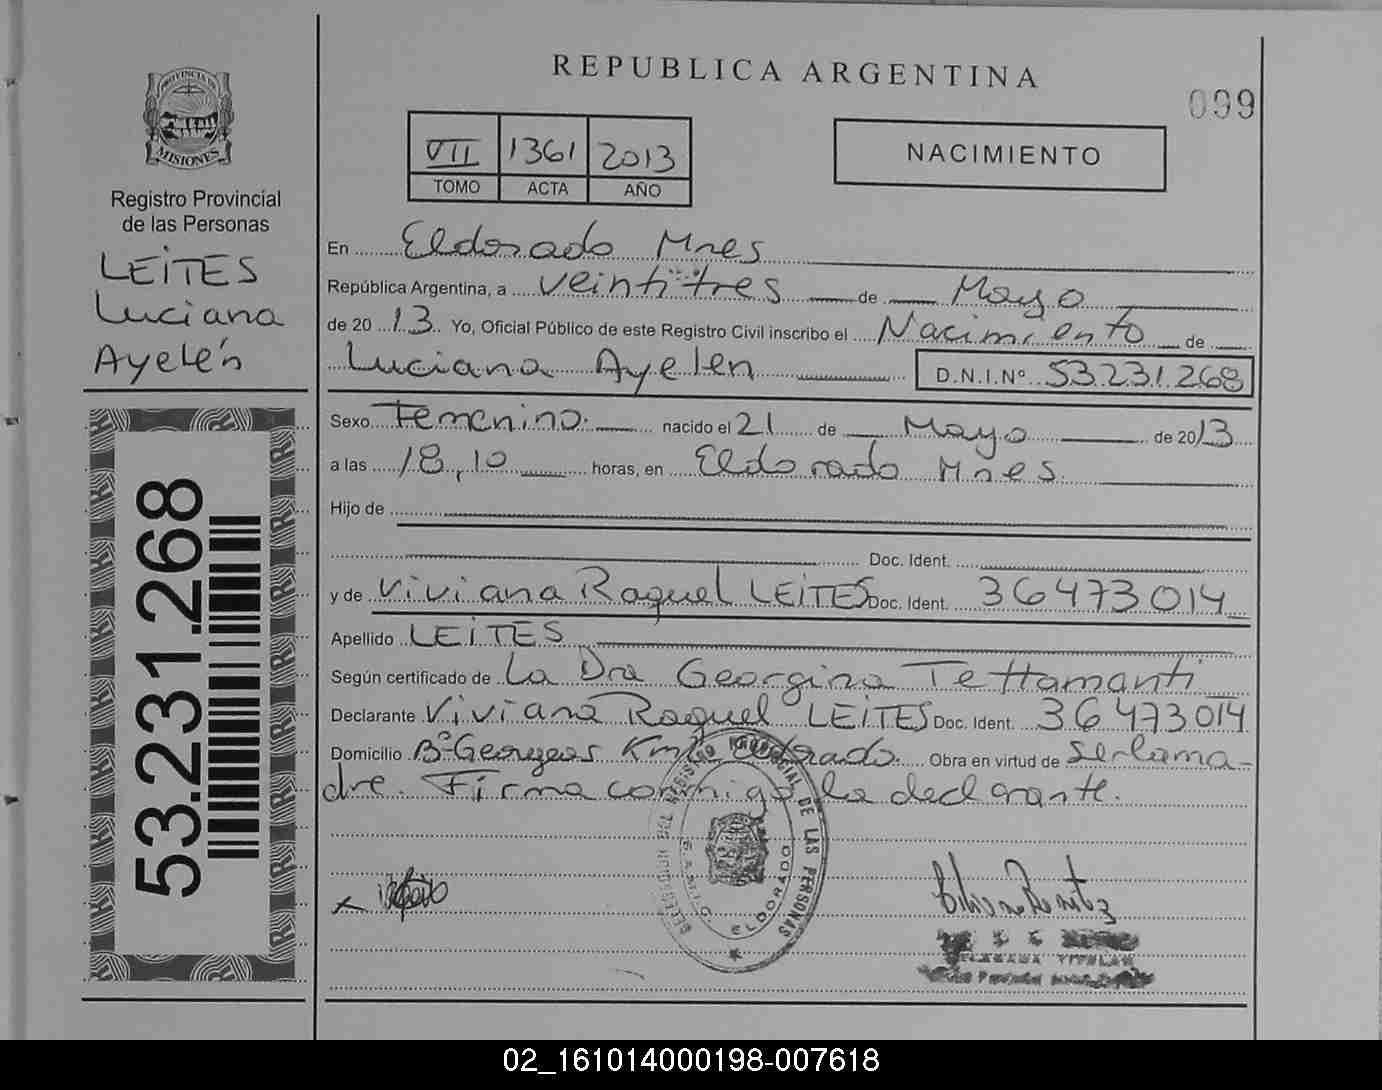 REPUBLICA ARGENTINA
099
PROVINCIA DE
MISIONES
Registro Provincial
de las Personas
LEITES
Luciana
Ayelén
53.231.268
VII 1361 2013
TOMO ACTA AÑO
NACIMIENTO
En Eldorado Mnes
República Argentina, a veintitres de Mayo
de 2013. Yo, Oficial Público de este Registro Civil inscribo el Nacimiento de
Luciana Ayelen D.N.I.Nº 53.231.268
Sexo Femenino. nacido el 21 de Mayo de 2013
a las 18,10 horas, en Eldorado Mnes.
Hijo de
Doc. Ident.
y de Viviana Raquel LEITES Doc. Ident. 36473014
Apellido LEITES
Según certificado de La Dra Georgina Tettamanti
Declarante Viviana Raquel LEITES Doc. Ident. 36473014
Domicilio Bº Eldorado. Obra en virtud de ser la ma-
dre. Firma conmigo la declarante.
DEL REGISTRO PROVINCIAL DE LAS PERSONAS
ELDORADO
TITULAR
02_161014000198-007618